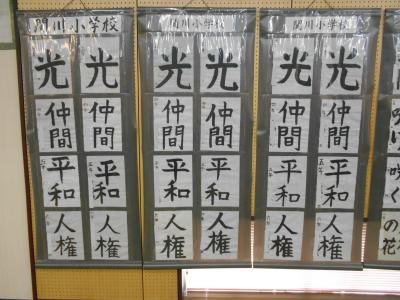 関川小学校
光 光
仲間 仲間
平和 平和
人権 人権
関川小学校
光 光
仲間 仲間
平和 平和
人権 人権
関川小学校
光 光
仲間 仲間
平和 平和
人権 人権
咲く
の花